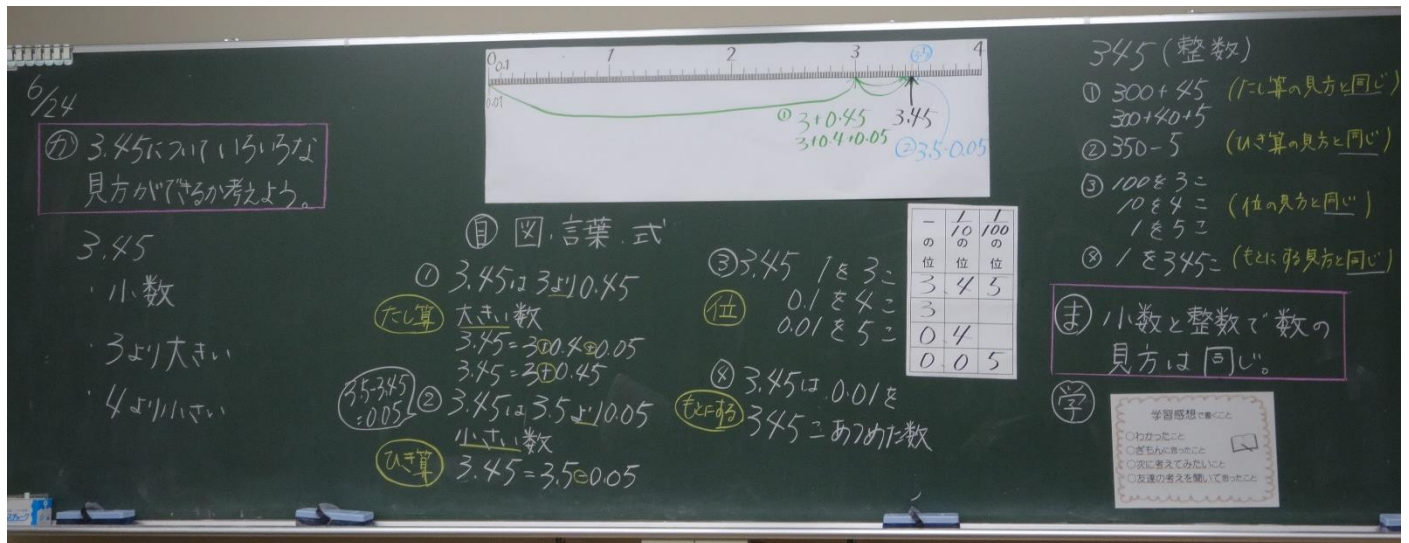 6/24
か 3.45についていろいろな
見方ができるか考えよう。
3.45
・小数
・3より大きい
・4より小さい
0 1 2 3 3.5 4
0.1
0.01
① 3+0.45
3+0.4+0.05
3.45
② 3.5-0.05
自 図.言葉.式
① 3.45は3より0.45
たし算 大きい数
3.45=3+0.4+0.05
3.45=3+0.45
3.5-3.45
=0.05
② 3.45は3.5より0.05
小さい数
ひき算 3.45=3.5-0.05
③ 3.45 1を3こ
位 0.1を4こ
0.01を5こ
④ 3.45は0.01を
もとにする 345こあつめた数
一の位 1/10の位 1/100の位
3.45
3
0.4
0.05
345(整数)
① 300+45 (たし算の見方と同じ)
300+40+5
② 350-5 (ひき算の見方と同じ)
③ 100を3こ
10を4こ (位の見方と同じ)
1を5こ
④ 1を345こ (もとにする見方と同じ)
ま 小数と整数で数の
見方は同じ。
学
学習感想で書くこと
○わかったこと
○ぎもんに思ったこと
○次に考えてみたいこと
○友達の考えを聞いて思ったこと